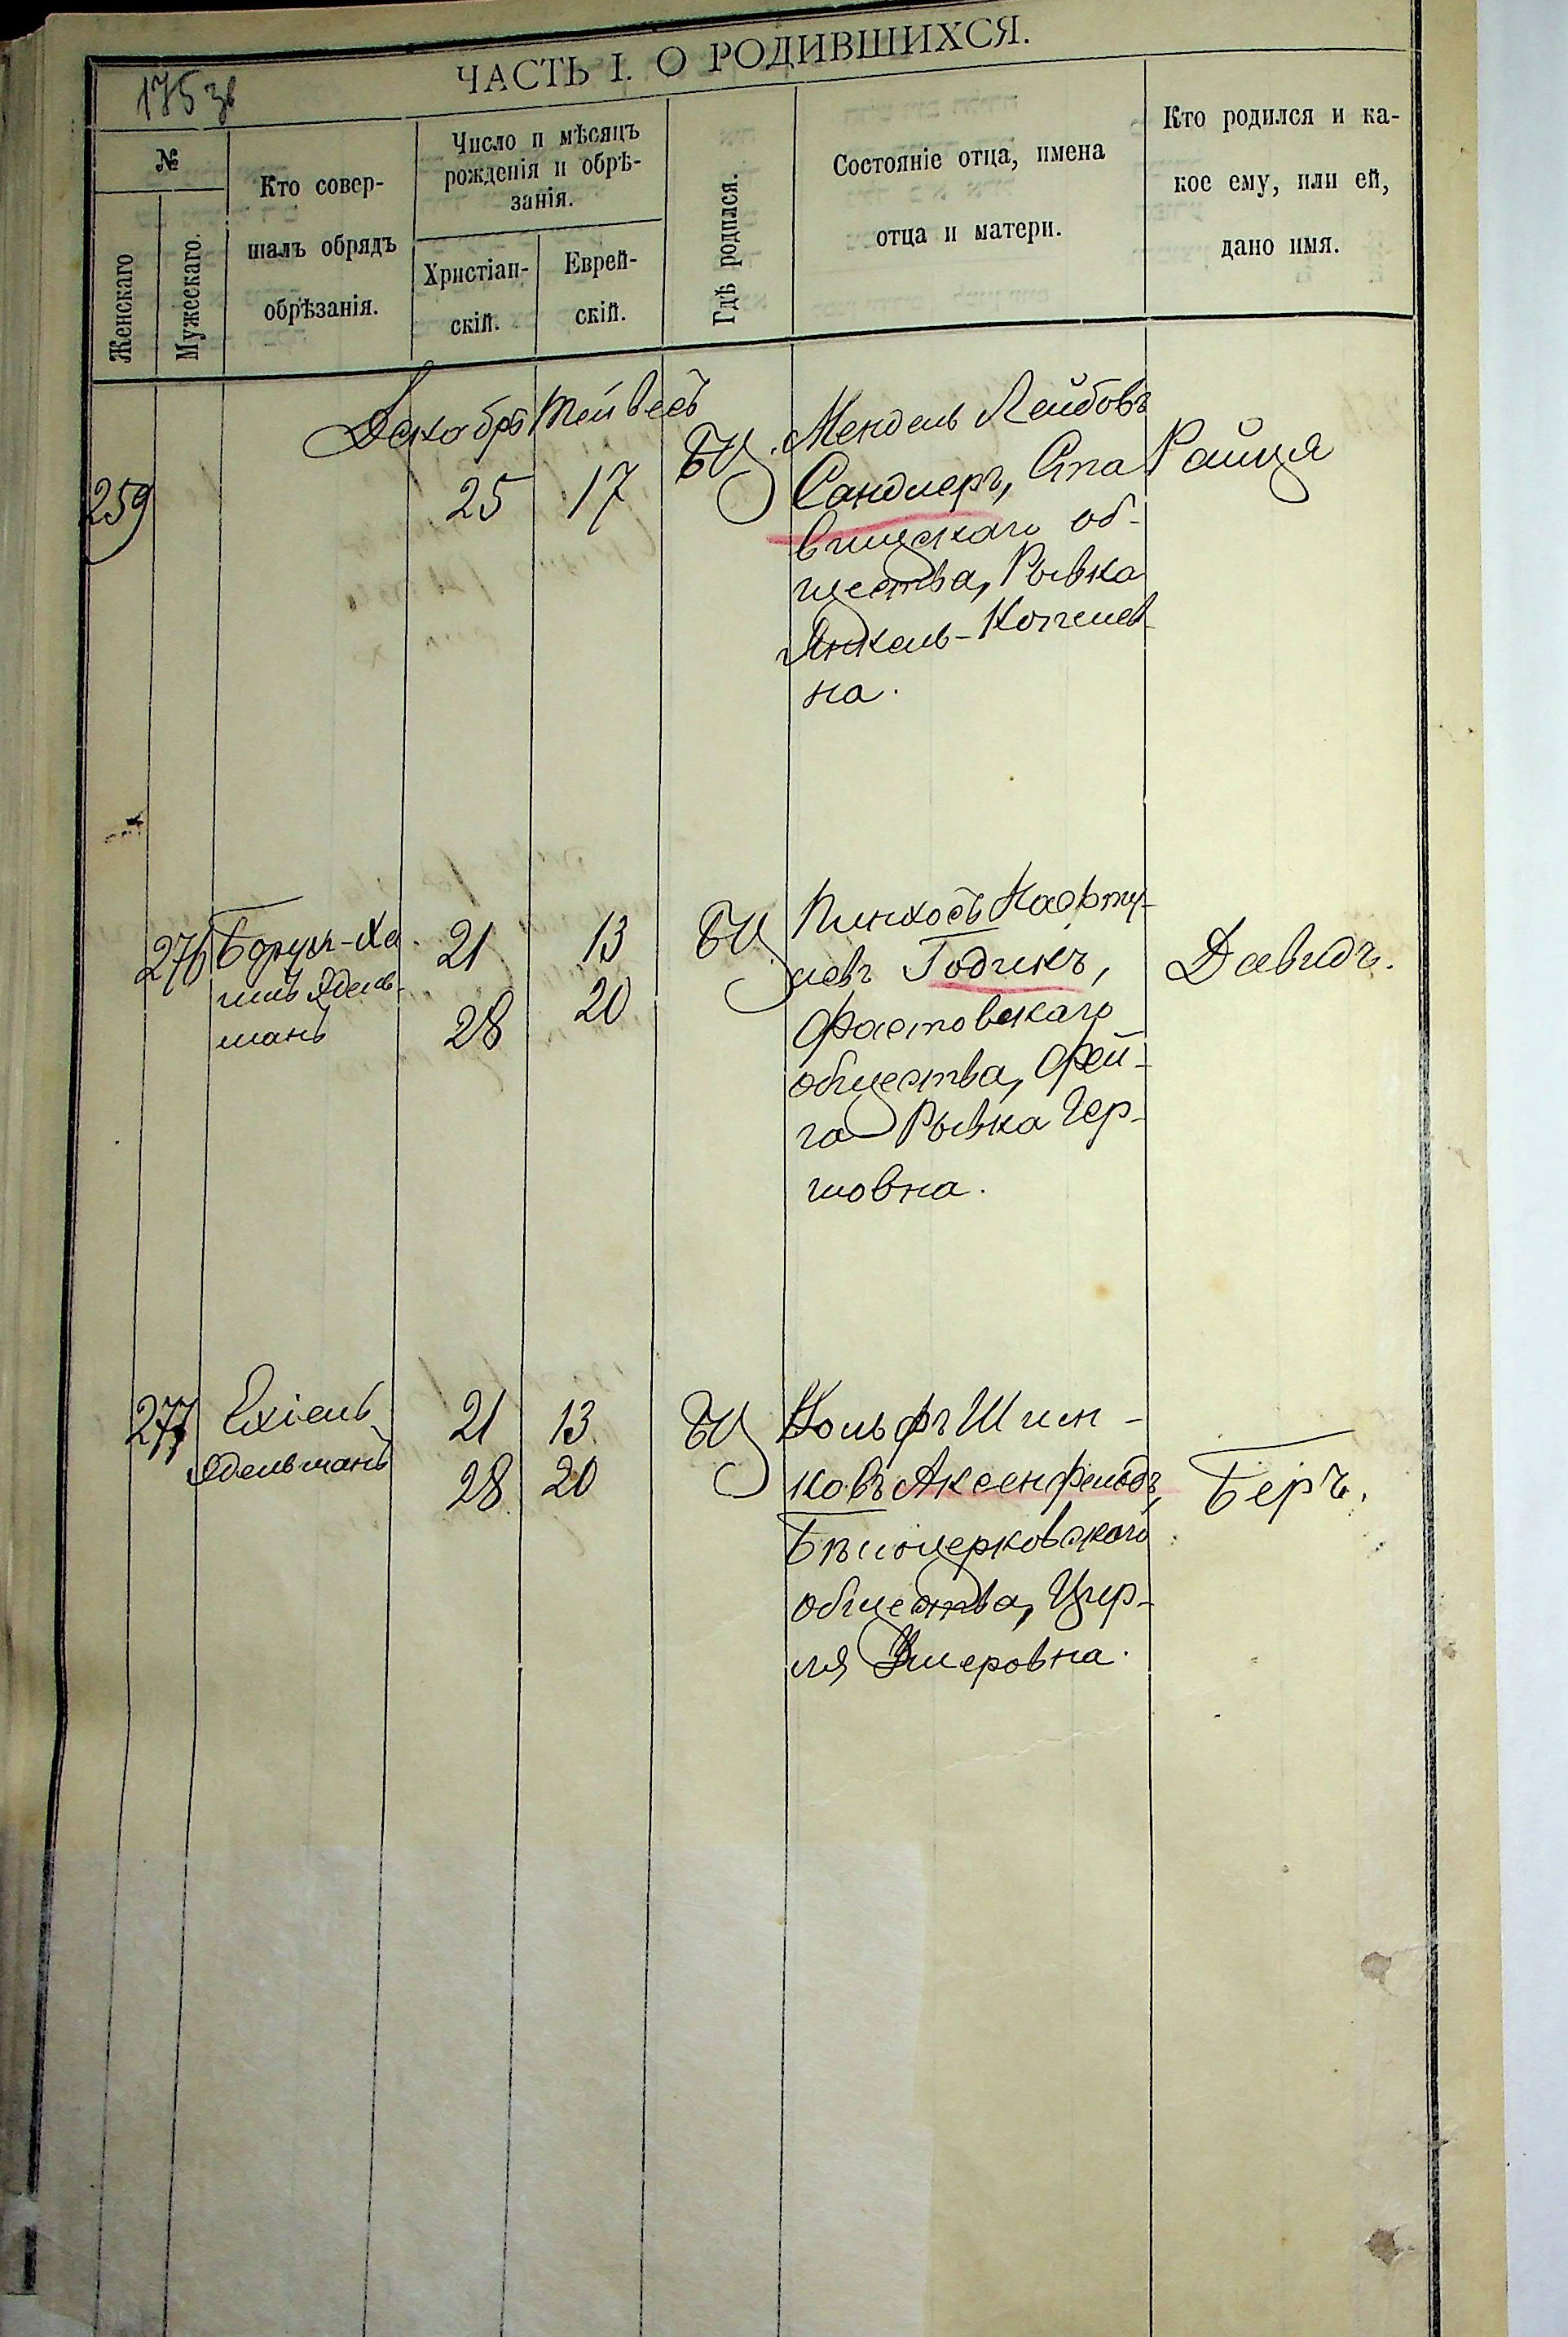 175 зв
ЧАСТЬ I. О РОДИВШИХСЯ.
№
Женскаго
Мужескаго.
Кто совер-
шалъ обрядъ
обрѣзанія.
Число и мѣсяцъ
рожденія и обрѣ-
занія.
Христіан-
скій.
Еврей-
скій.
Гдѣ родился.
Состояніе отца, имена
отца и матери.
Кто родился и ка-
кое ему, или ей,
дано имя.
Декабрь Тейвесъ
259
25 17
БЦ
Мендель Лейбовъ
Сандлеръ, Ста
вищскаго об-
щества, Рывка
Янкель-Коппелев
на.
Райця
276
Борухъ-Ха
имъ Эдель-
манъ
21 13
28 20
БЦ
Пинхосъ Нафту-
левъ Годикъ,
Фастовскаго
общества, Фей-
га Рывка Гер-
шовна.
Давидъ.
277
Ехіель
Эдельманъ
21 13
28 20
БЦ
Вольфъ Шим-
ковъ Аксенфельдъ,
Бѣлоцерковскаго
общества, Цир-
ля Умеровна.
Беръ.